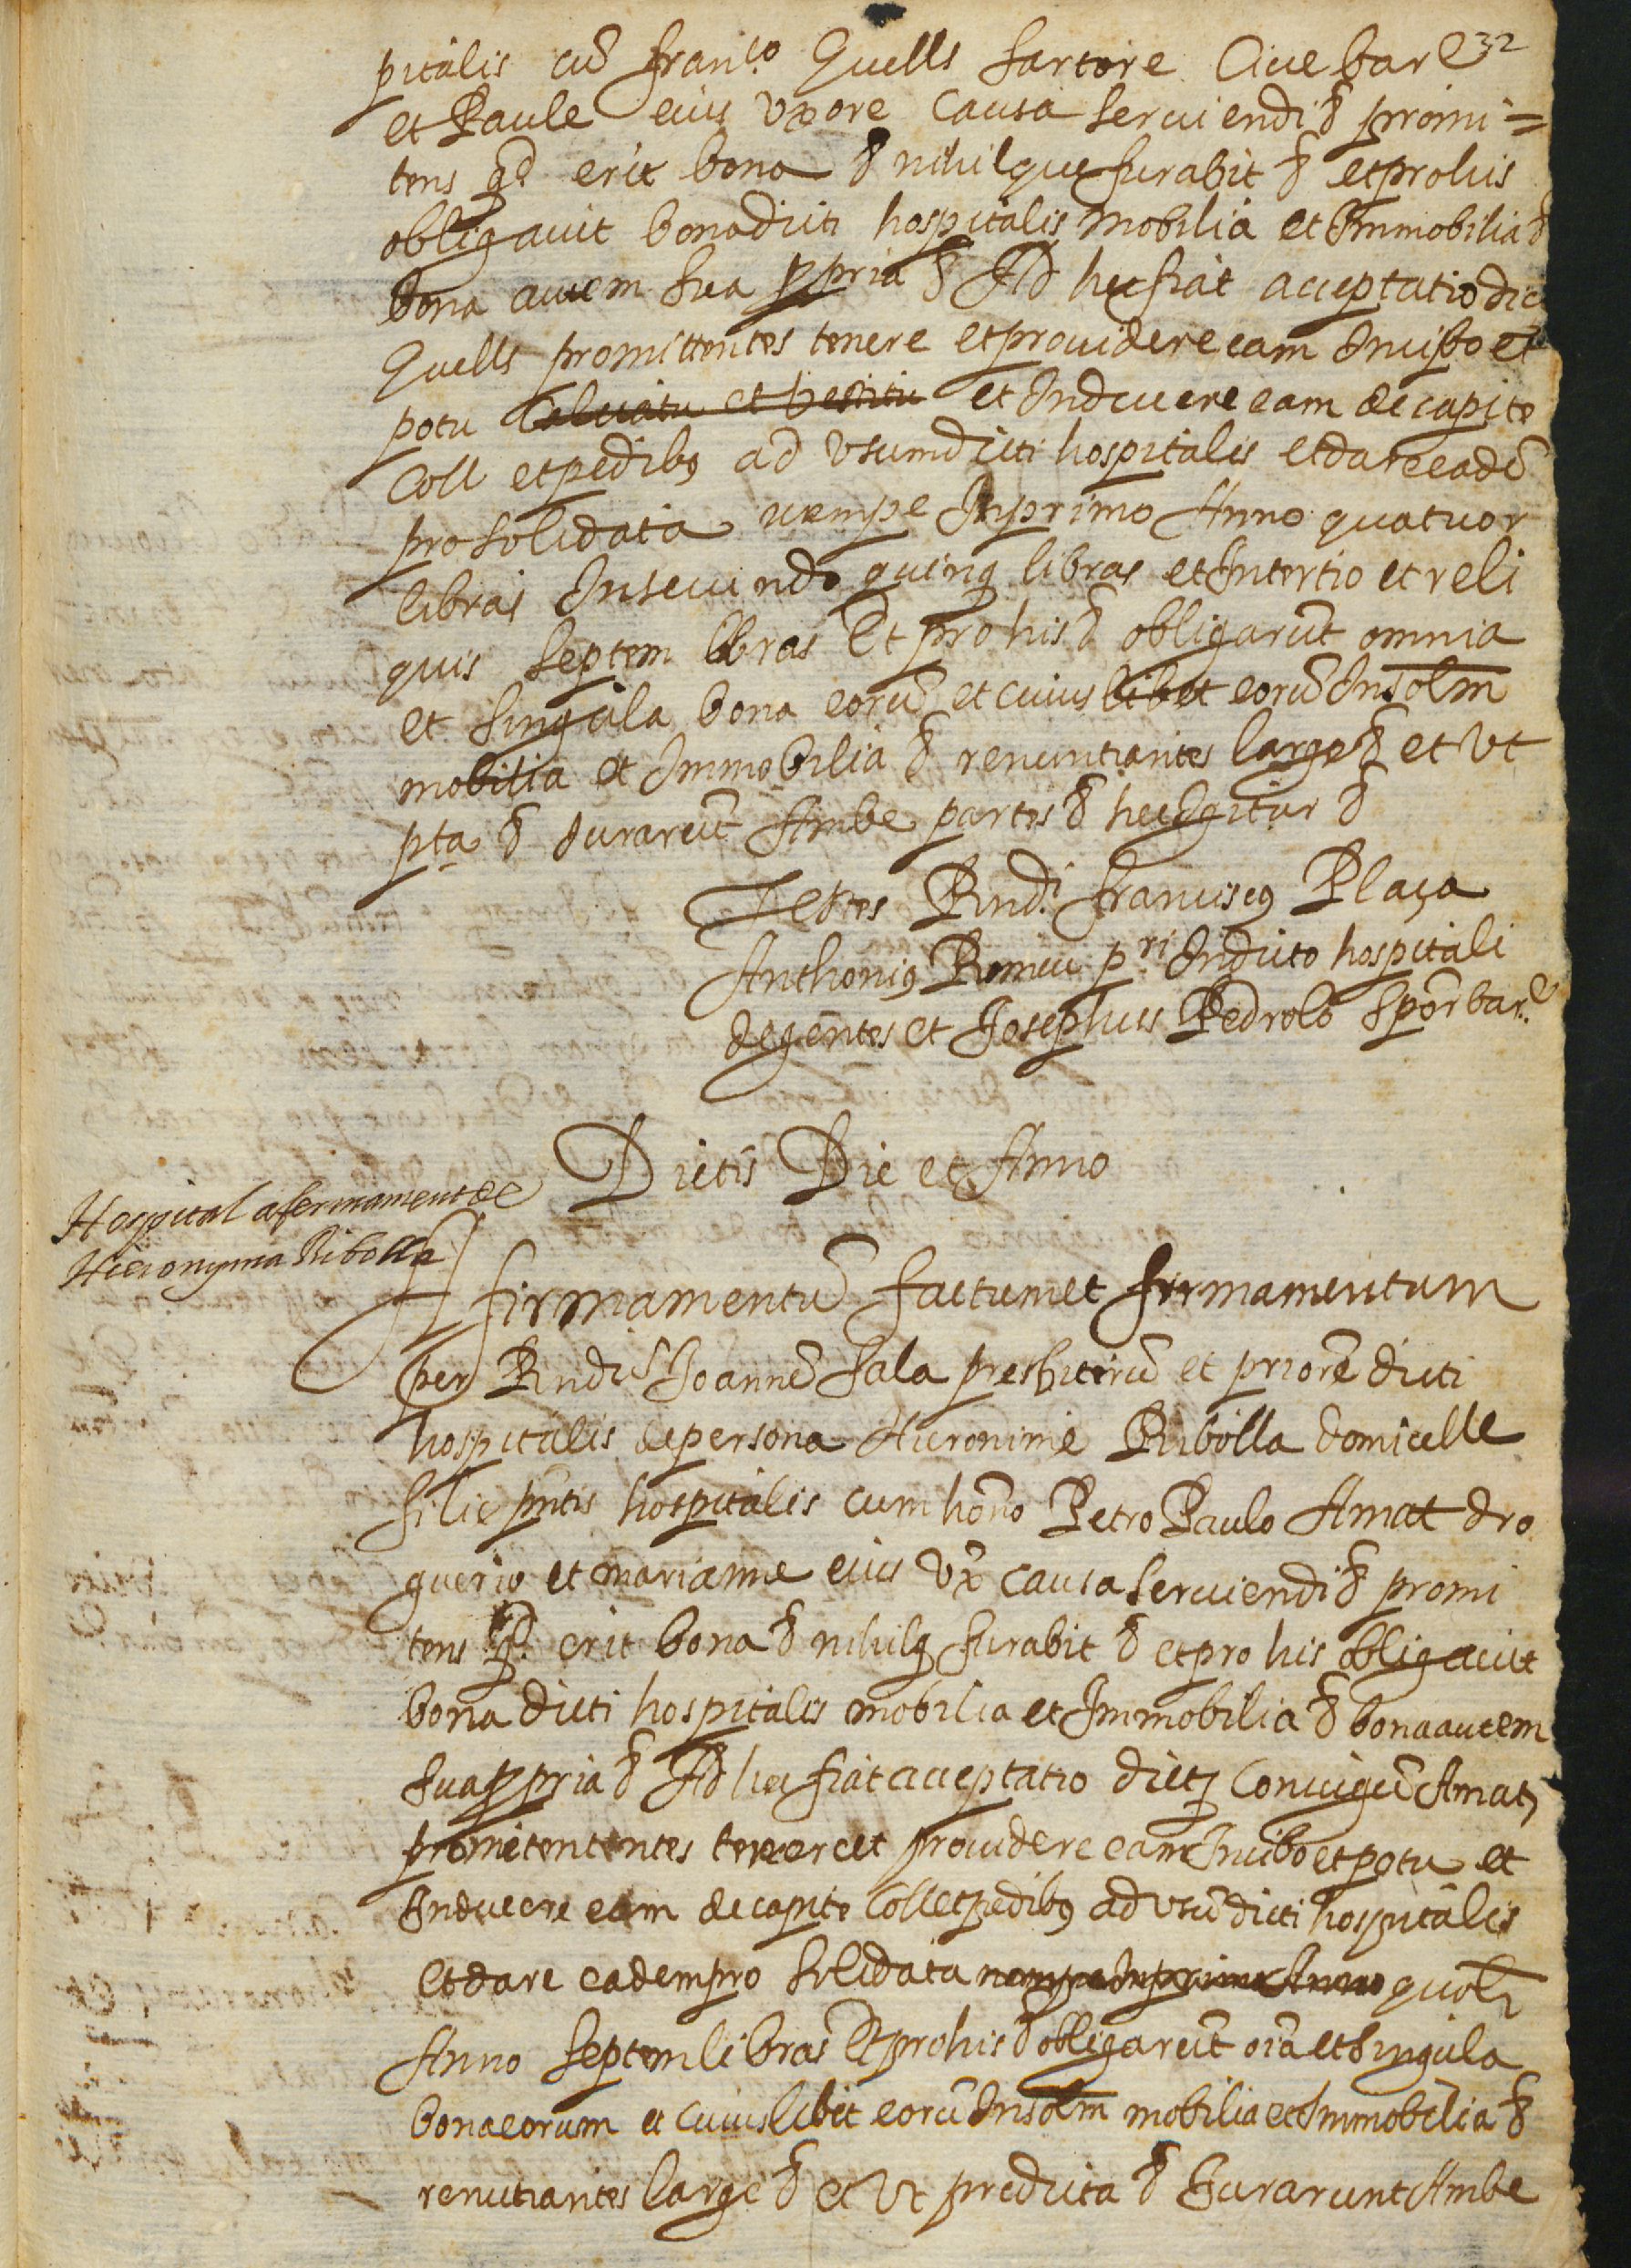 32
pitalis cū fran.co Quells sartore Ciue bar.e
et Paule eius vxore causa seruiendi & promi=
tens qd erit bona & nihilque furabit & et pro his
obligauit bona dicti hospitalis mobilia et Immobilia &
bona autem sua ppria & Ad hec fiat acceptatio dic
Quells promittentes tenere et prouidere eam In cibo et
potu calciatu et vestitu et Induere eam de capite
Coll et pedibꝰ ad vsum dicti hospitalis et dare eadē
pro solidata nempe In primo Anno quatuor
libras In secundo quinq libras et In tertio et reli
quis septem libras Et pro his & obligarūt omnia
et singula bona eorū et cuius libet eorū Insolm
mobilia et Immobilia & renuntiantes large & et vt
pta & Iurarūt Ambe partes & hec Igitur &
Testes Rndi. franciscꝰ Plaça
Anthoniꝰ Romeu p.ri In dicto hospitali
degentes et Josephus Pedrolo Spōr bar.e
Dictis Die et Anno
Hospital afermament de
Hieronyma Ribolla
Afirmamentū factum et firmamentum
per Rndis Joannē Sala presbiterū et priorē dicti
hospitalis de persona Hieronime Ribolla domicelle
filie pntis hospitalis cum hono Petro Paulo Amat dro
guerio et marianne eius vx causa seruiendi & promi
tens qd. erit bona & nihilq furabit & et pro his obligauit
bona dicti hospitalis mobilia et Immobilia & bona autem
sua ppria & Ad hec fiat acceptatio dictj Coniugū Amatj
promitententes tenere et prouidere eam In cibo et potu et
Induere eam de capite Coll et pedibꝰ ad vsū dicti hospitalis
Et dare eadem pro solidata nempe In primo Anno quolt
Anno septem libras Et pro his & obligarūt oīa et singula
bona eorum et cuius libet eorū Insolm mobilia et Immobilia &
renutiantes large & et vt predicta & Iurarunt Ambe